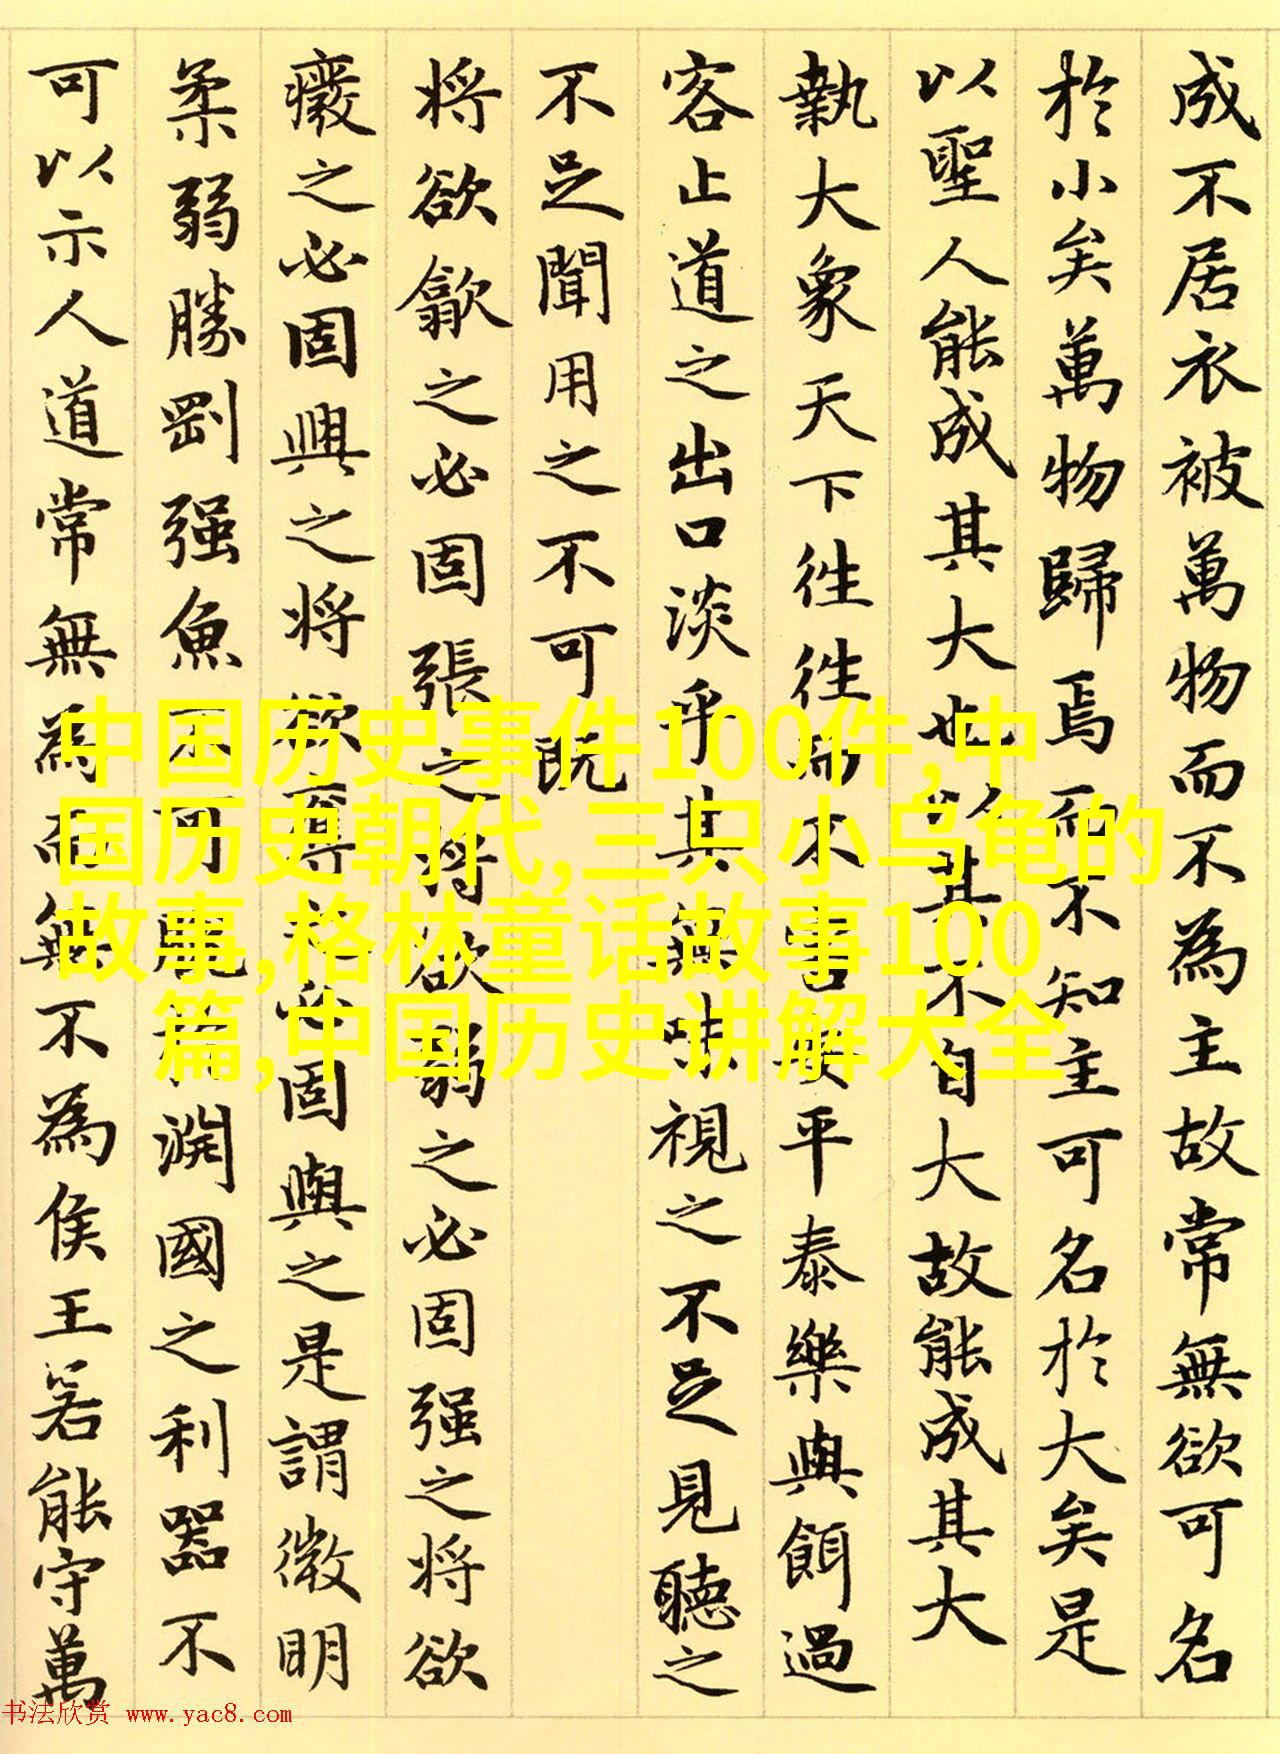 成不居衣被萬物而不為主故常無欲可名
於小矣萬物歸焉而不知主可名於大矣是
以聖人能成其大也以其不自大故能成其大
執大象天下往往而不害安平泰樂與餌過
客止道之出口淡乎其無味視之不足見聽之
不足聞用之不可既
将欲歙之必固張之将欲弱之必固强之将欲
癈之必固興之将欲奪之必固與之是謂微明
柔弱勝剛强魚不可脱於淵國之利器不
可以示人道常無為而無不為侯王若能守萬
中国历史事件100件,中
国历史朝代,三只小乌龟的
故事,格林童话故事100
篇,中国历史讲解大全
书法欣赏 www.yac8.com